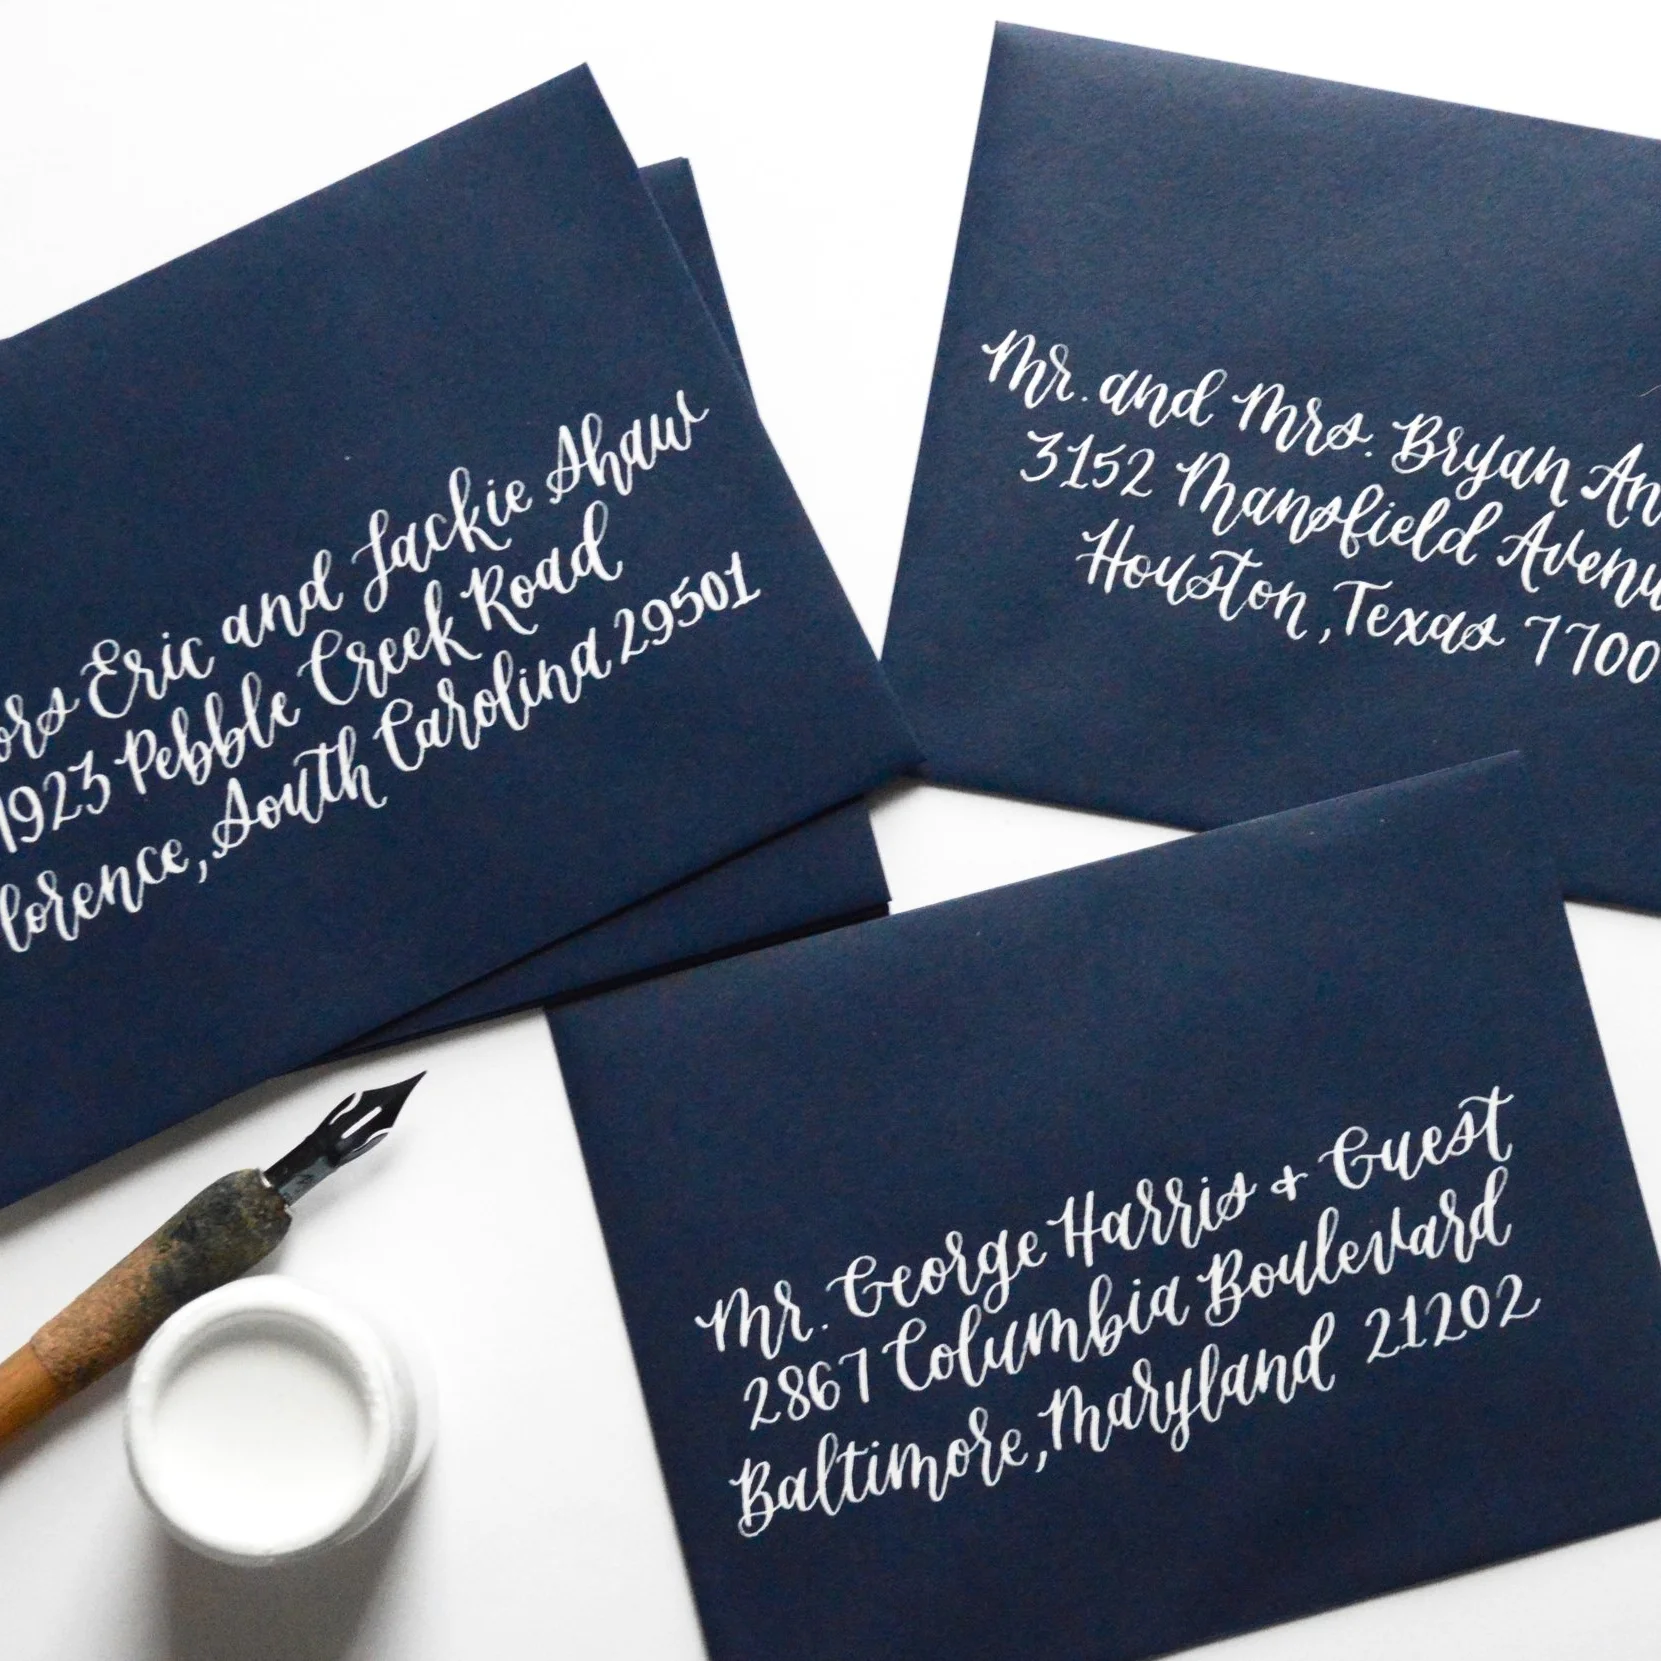 Eric and Jackie Shaw
1923 Pebble Creek Road
South Carolina 29501
Mr. and Mrs. Bryan
3152 Mansfield
Houston, Texas
Mr. George Harris + Guest
2867 Columbia Boulevard
Baltimore, Maryland 21202